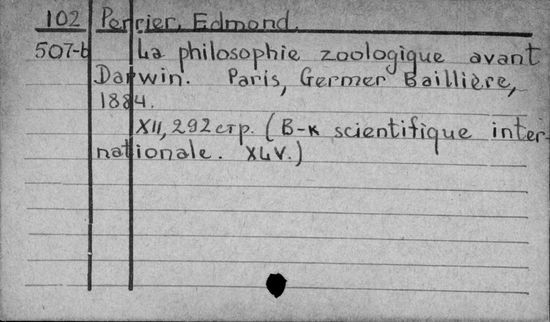 102 Perrier, Edmond.
507-b La philosophie zoologique avant
Darwin. Paris, Germer Baillière,
1884.
XII, 292 стр. (B-к scientifique inter-
nationale. XLV.)